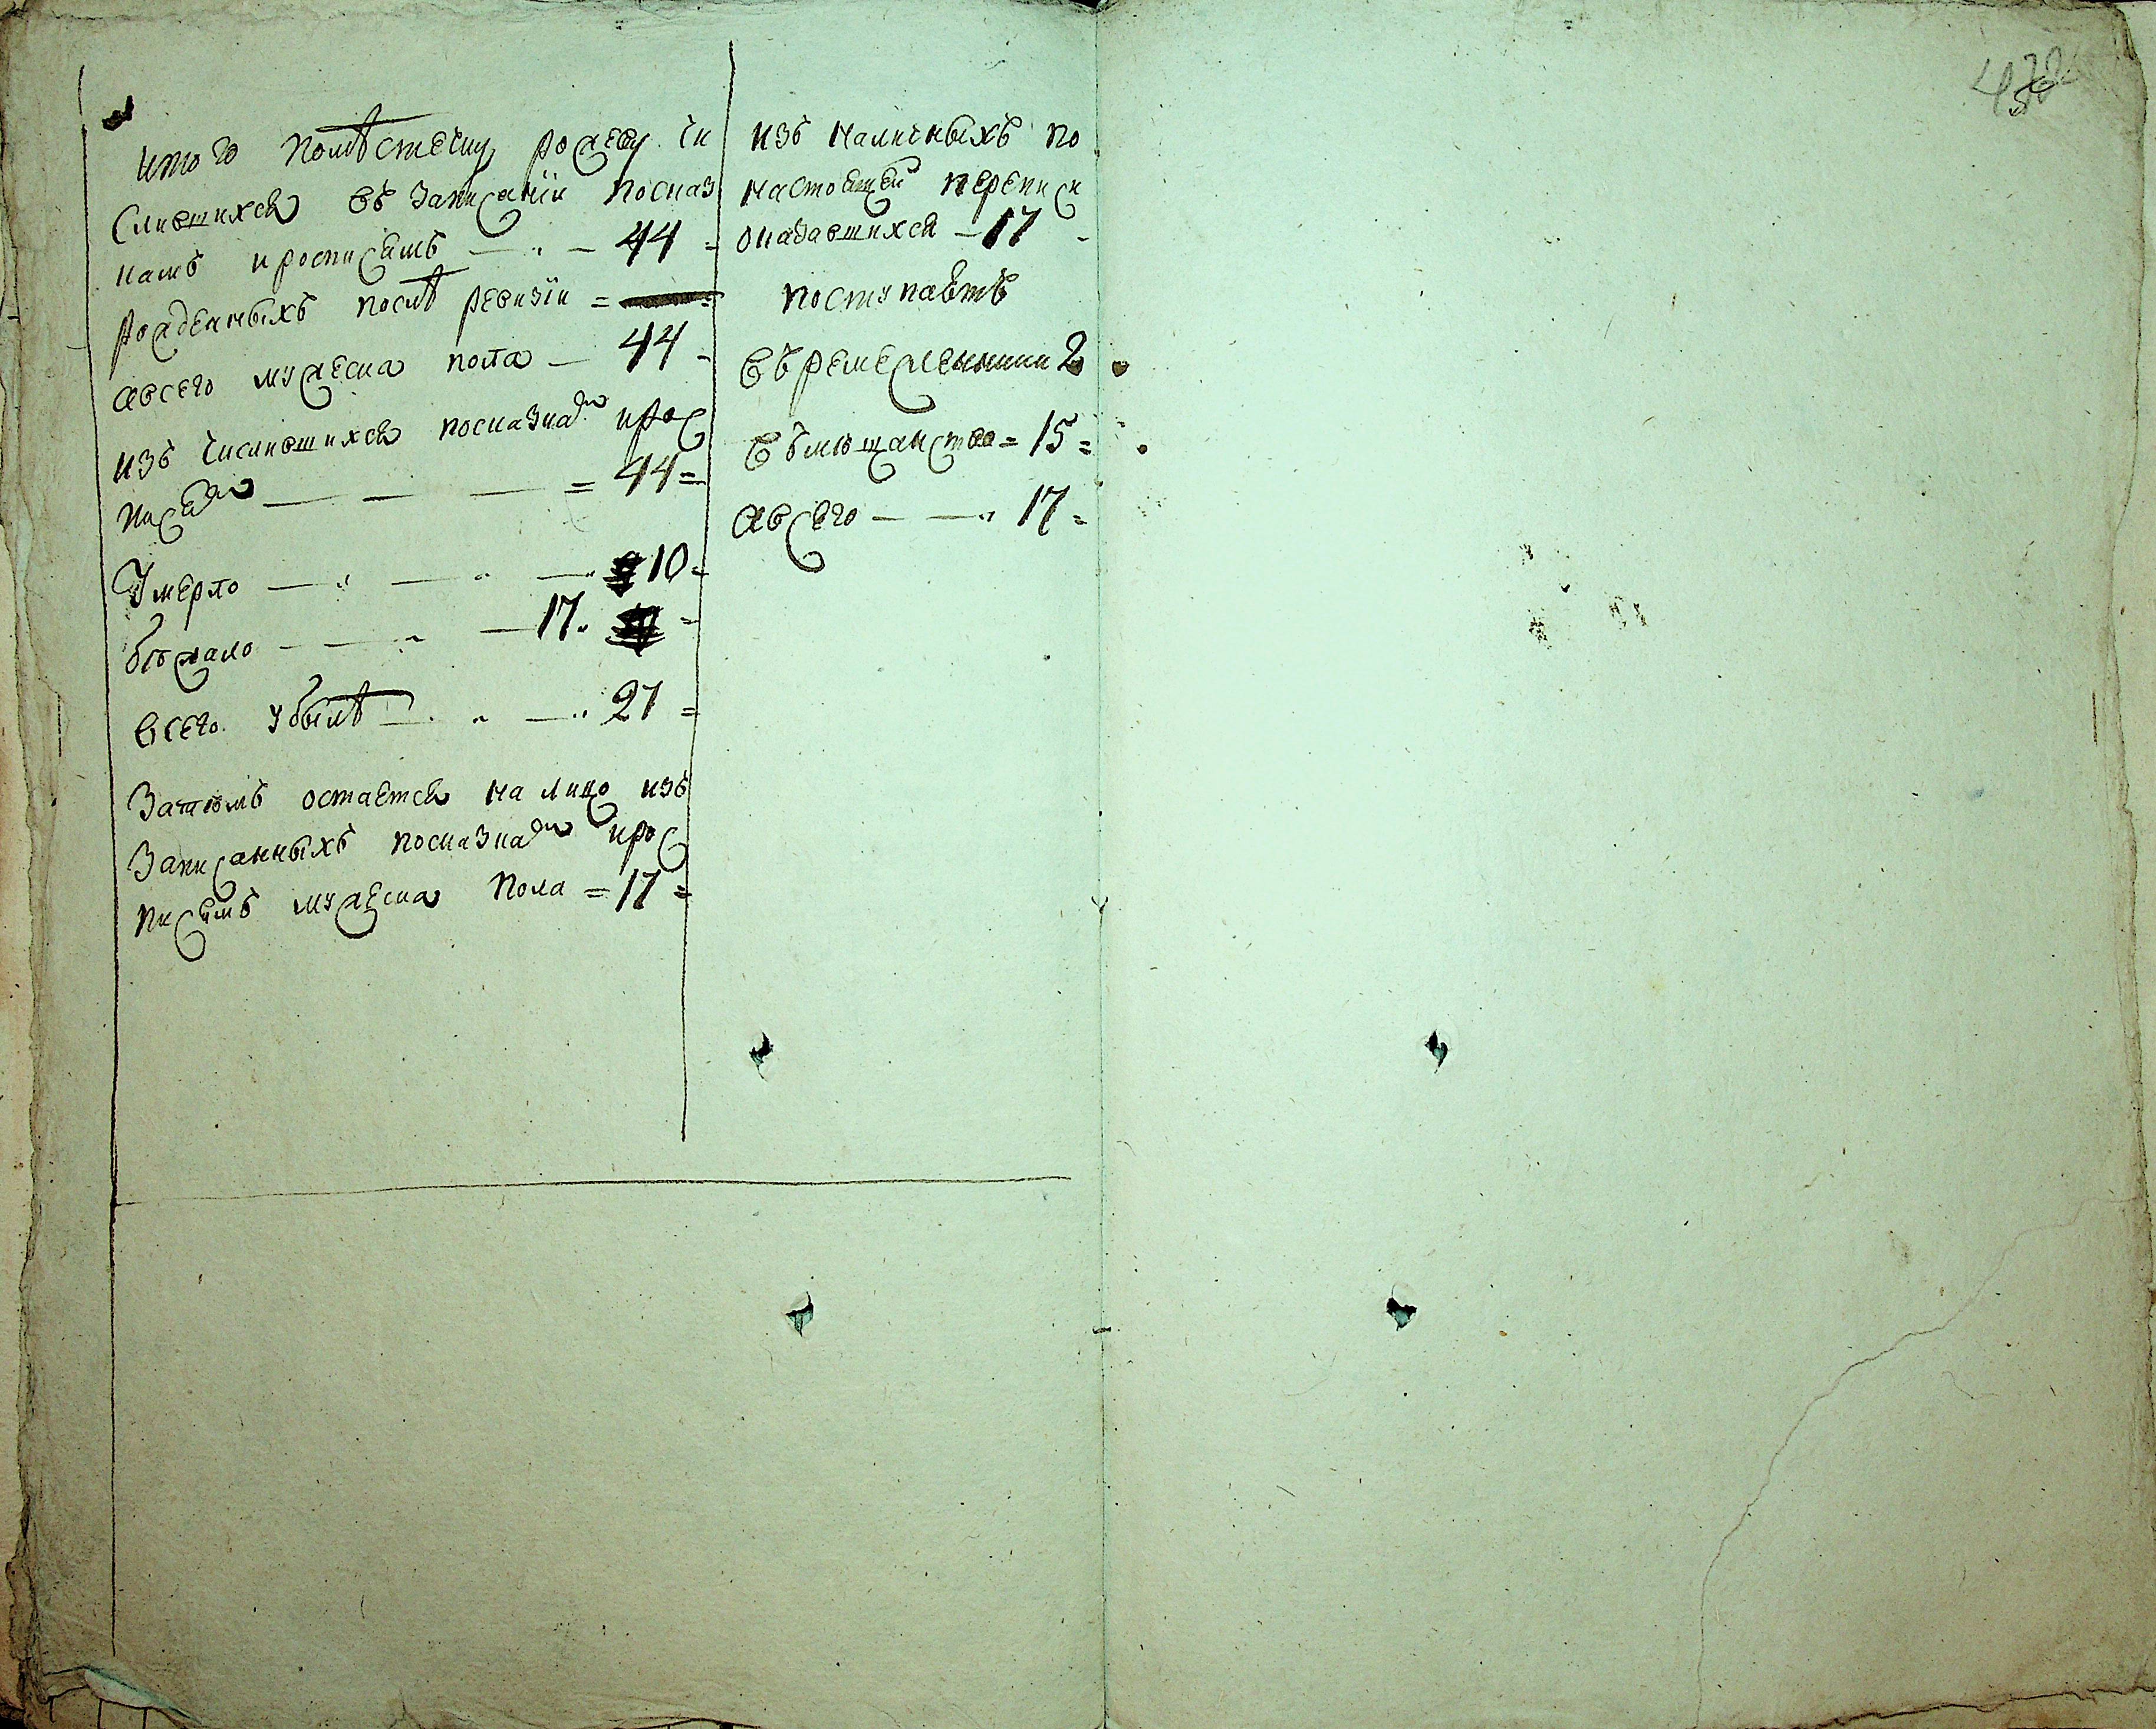 итого поместечку рожеву чи
слившихся въ записаніи посказ
камъ иросписямъ — " — 44 =
рожденныхъ послѣ ревизіи =
авсего мужеска пола — 44 -
изъ числившихся посказкамъ ирос
писямъ — — — = 44 =
Умерло — " — " — " 10 -
бѣжало — — " — 17 " =
всего убылѣ — " — " 27 =
Затѣмъ остается на лицо изъ
Записанныхъ посказкамъ ирос
писямъ мужеска пола = 17 =
изъ наличныхъ по
настоящей переписи
оказавшихся — 17 -
поступаетъ
въремесленники 2
въмѣщанство = 15 =
авсего — — " 17 =